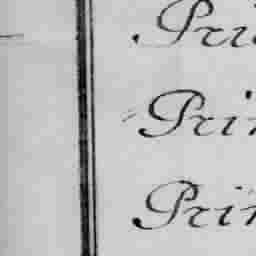 Pri
Prin
Prin